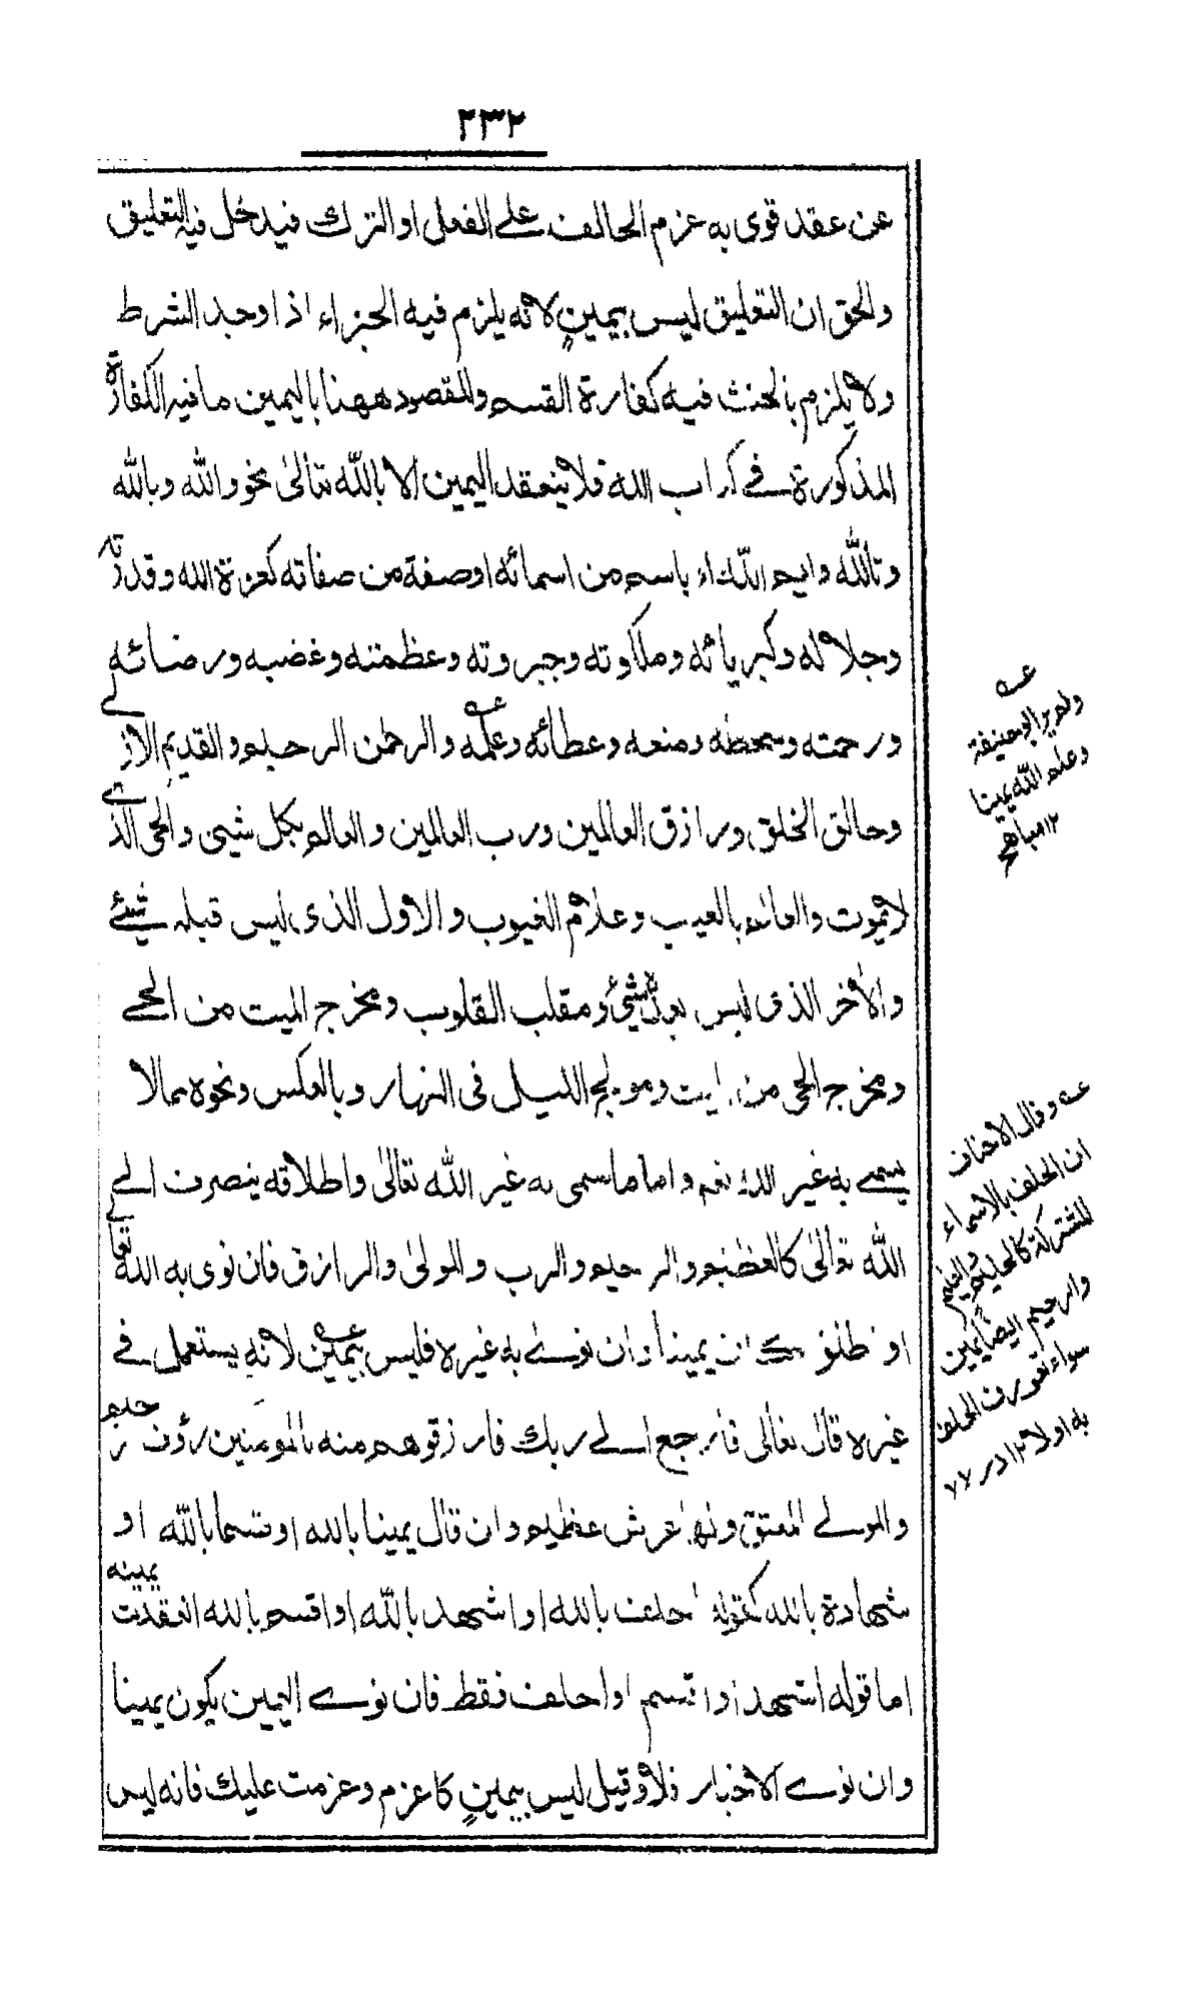 ٢٣٢
عن عقد قوى به عزم الحالف على الفعل او الترك فيدخل فيه التعليق
والحق ان التعليق ليس بيمينٍ لانه يلزم فيه الجزاء اذا وجد الشرط
ولا يلزم بالحنث فيه كفارة القسم والمقصود ههنا باليمين ما فيه الكفارة
المذكورة فى كتاب الله فلا ينعقد اليمين الا بالله تعالىٰ نحو والله وبالله
وتالله وايم الله او باسم من اسمائه او صفة من صفاته كعزة الله وقدرته
وجلاله وكبريائه وملكوته وجبروته وعظمته وغضبه ورضائه
ورحمته وسخطه ومنعه وعطائه وعلمه عــه والرحمن الرحيم والقديم الازلى
وخالق الخلق ورازق العالمين ورب العالمين والعالم بكل شيئ والحى الذى
لا يموت والعالم بالغيب وعلام الغيوب والاول الذى ليس قبله شيئ
والاٰخر الذى ليس بعده شيئ ومقلب القلوب ومخرج الميت من الحى
ومخرج الحى من الميت ومولج الليل فى النهار وبالعكس ونحوه مما لا
يسمى به غير الله نعم واما ما سمى به غير الله تعالىٰ واطلاقه ينصرف الى
الله تعالىٰ كالعظيم والرحيم والرب والمولىٰ والرازق فان نوى به الله تعالى
او كان يمينا وان نوى به غيره فليس بيمين عــه لانه يستعمل فى
غيره قال تعالٰى فارجع الى ربك فارزقوهم منه بالمومنين رؤف رحيم
والمولى المعتق ولها عرش عظيم وان قال يمينا بالله او قسما بالله او
شهادة بالله كقوله احلف بالله او اشهد بالله او اقسم بالله انعقدت يمينه
اما قوله اشهد او اقسم او احلف فقط فان نوى اليمين يكون يمينا
وان نوى الاخبار فلا وقيل ليس بيمينٍ كاعزم وعزمت عليك فانه ليس
عــه
ولم ير ابو حنيفة
وعلم الله يمينا
١٢
عــه وقال الاحناف
ان الحلف بالاسماء
المشتركة كالحليم والعليم
والرحيم ايضا يمين
سواء تعورف الحلف
به اولا ١٢